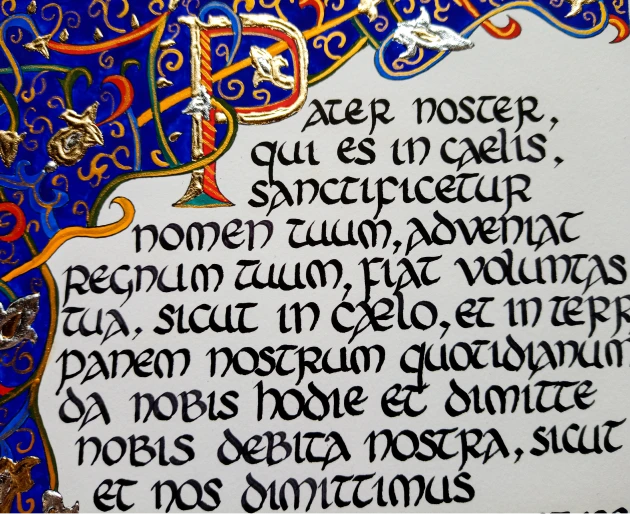 Pater noster,
qui es in caelis,
sanctificetur
nomen tuum, adveniat
regnum tuum, fiat voluntas
tua, sicut in cælo, et in terr
panem nostrum quotidianum
da nobis hodie et dimitte
nobis debita nostra, sicut
et nos dimittimus